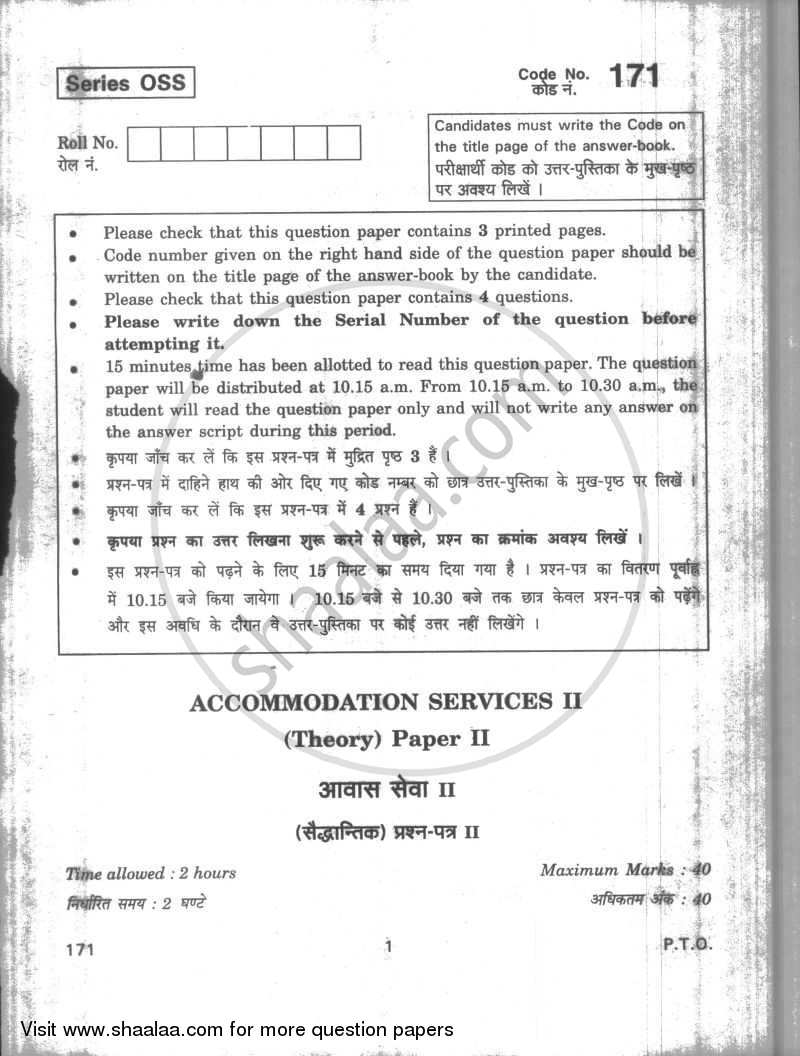 Series OSS
Code No. 171
कोड नं.
Roll No.
रोल नं.
Candidates must write the Code on
the title page of the answer-book.
परीक्षार्थी कोड को उत्तर-पुस्तिका के मुख-पृष्ठ
पर अवश्य लिखें ।
• Please check that this question paper contains 3 printed pages.
• Code number given on the right hand side of the question paper should be
written on the title page of the answer-book by the candidate.
• Please check that this question paper contains 4 questions.
• Please write down the Serial Number of the question before
attempting it.
• 15 minutes time has been allotted to read this question paper. The question
paper will be distributed at 10.15 a.m. From 10.15 a.m. to 10.30 a.m., the
student will read the question paper only and will not write any answer on
the answer script during this period.
• कृपया जाँच कर लें कि इस प्रश्न-पत्र में मुद्रित पृष्ठ 3 हैं ।
• प्रश्न-पत्र में दाहिने हाथ की ओर दिए गए कोड नम्बर को छात्र उत्तर-पुस्तिका के मुख-पृष्ठ पर लिखें ।
• कृपया जाँच कर लें कि इस प्रश्न-पत्र में 4 प्रश्न हैं ।
• कृपया प्रश्न का उत्तर लिखना शुरू करने से पहले, प्रश्न का क्रमांक अवश्य लिखें ।
• इस प्रश्न-पत्र को पढ़ने के लिए 15 मिनट का समय दिया गया है । प्रश्न-पत्र का वितरण पूर्वाह्न
में 10.15 बजे किया जायेगा । 10.15 बजे से 10.30 बजे तक छात्र केवल प्रश्न-पत्र को पढ़ेंगे
और इस अवधि के दौरान वे उत्तर-पुस्तिका पर कोई उत्तर नहीं लिखेंगे ।
shaalaa.com
ACCOMMODATION SERVICES II
(Theory) Paper II
आवास सेवा II
(सैद्धान्तिक) प्रश्न-पत्र II
Time allowed : 2 hours
Maximum Marks : 40
निर्धारित समय : 2 घण्टे
अधिकतम अंक : 40
171
1
P.T.O.
Visit www.shaalaa.com for more question papers